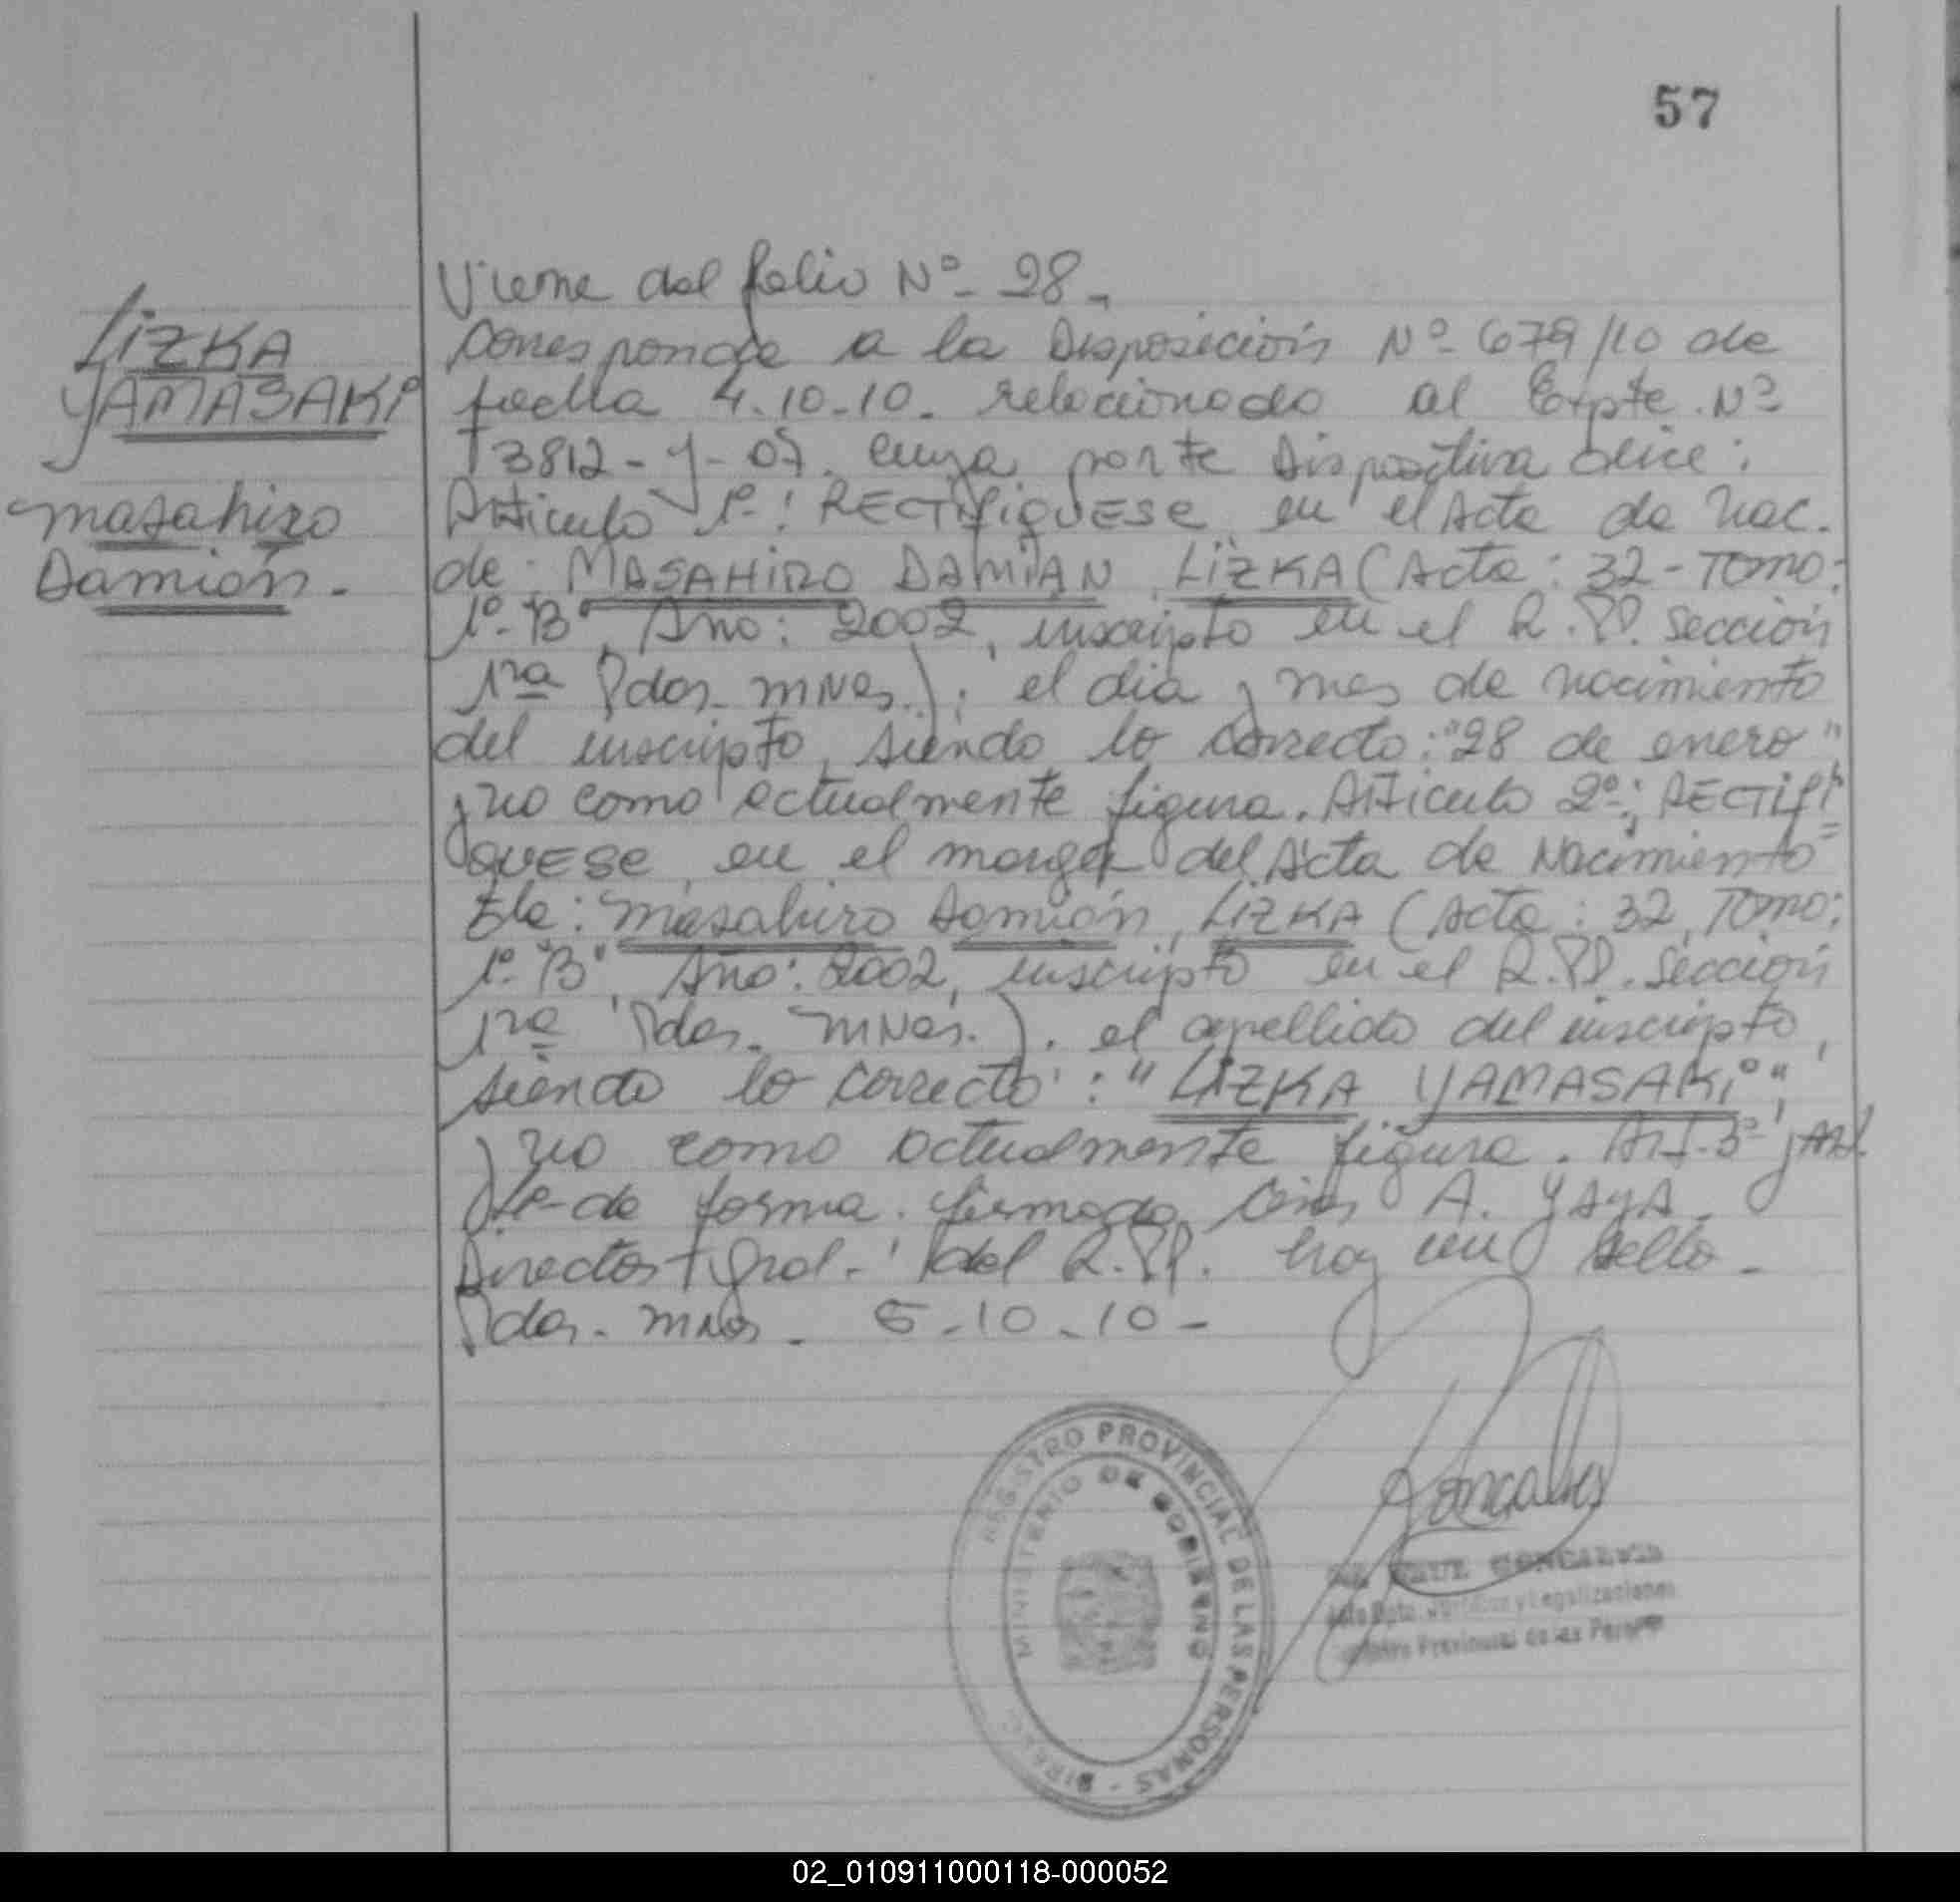 57
LIZKA
YAMASAKI
Masahiro
Damián.
Viene del folio Nº 28.
Corresponde a la Disposición Nº 679/10 de
fecha 4.10.10. relacionado al Expte. Nº
3812-Y-07. cuya parte Dispositiva dice:
Artículo 1º: RECTIFIQUESE en el Acta de Nac.
de: MASAHIRO DAMIAN LIZKA (Acta: 32 - Tomo:
1º "B", Año: 2002, inscripto en el R.P.P. Sección
1ra Pdas. Mnes.); el día y mes de nacimiento
del inscripto, siendo lo correcto: "28 de enero"
y no como actualmente figura. Artículo 2º: RECTIFI
QUESE, en el margen del Acta de Nacimiento
de: Masahiro Damián, LIZKA (Acta: 32, Tomo:
1º "B", Año: 2002, inscripto en el R.P.P. Sección
1ra Pdas. Mnes.). el apellido del inscripto,
siendo lo correcto: "LIZKA YAMASAKI";
y no como actualmente figura. Art. 3º y Art.
4º de forma. firmado A. YAYA
Director Gral. del R.P.P. hay un sello.
Pdas. Mnes. 5-10-10-
REGISTRO PROVINCIAL DE LAS PERSONAS
MINISTERIO DE GOBIERNO
Goncalves
GONCALVES
Dpto. y Legalizaciones
Provincial de las
02_010911000118-000052